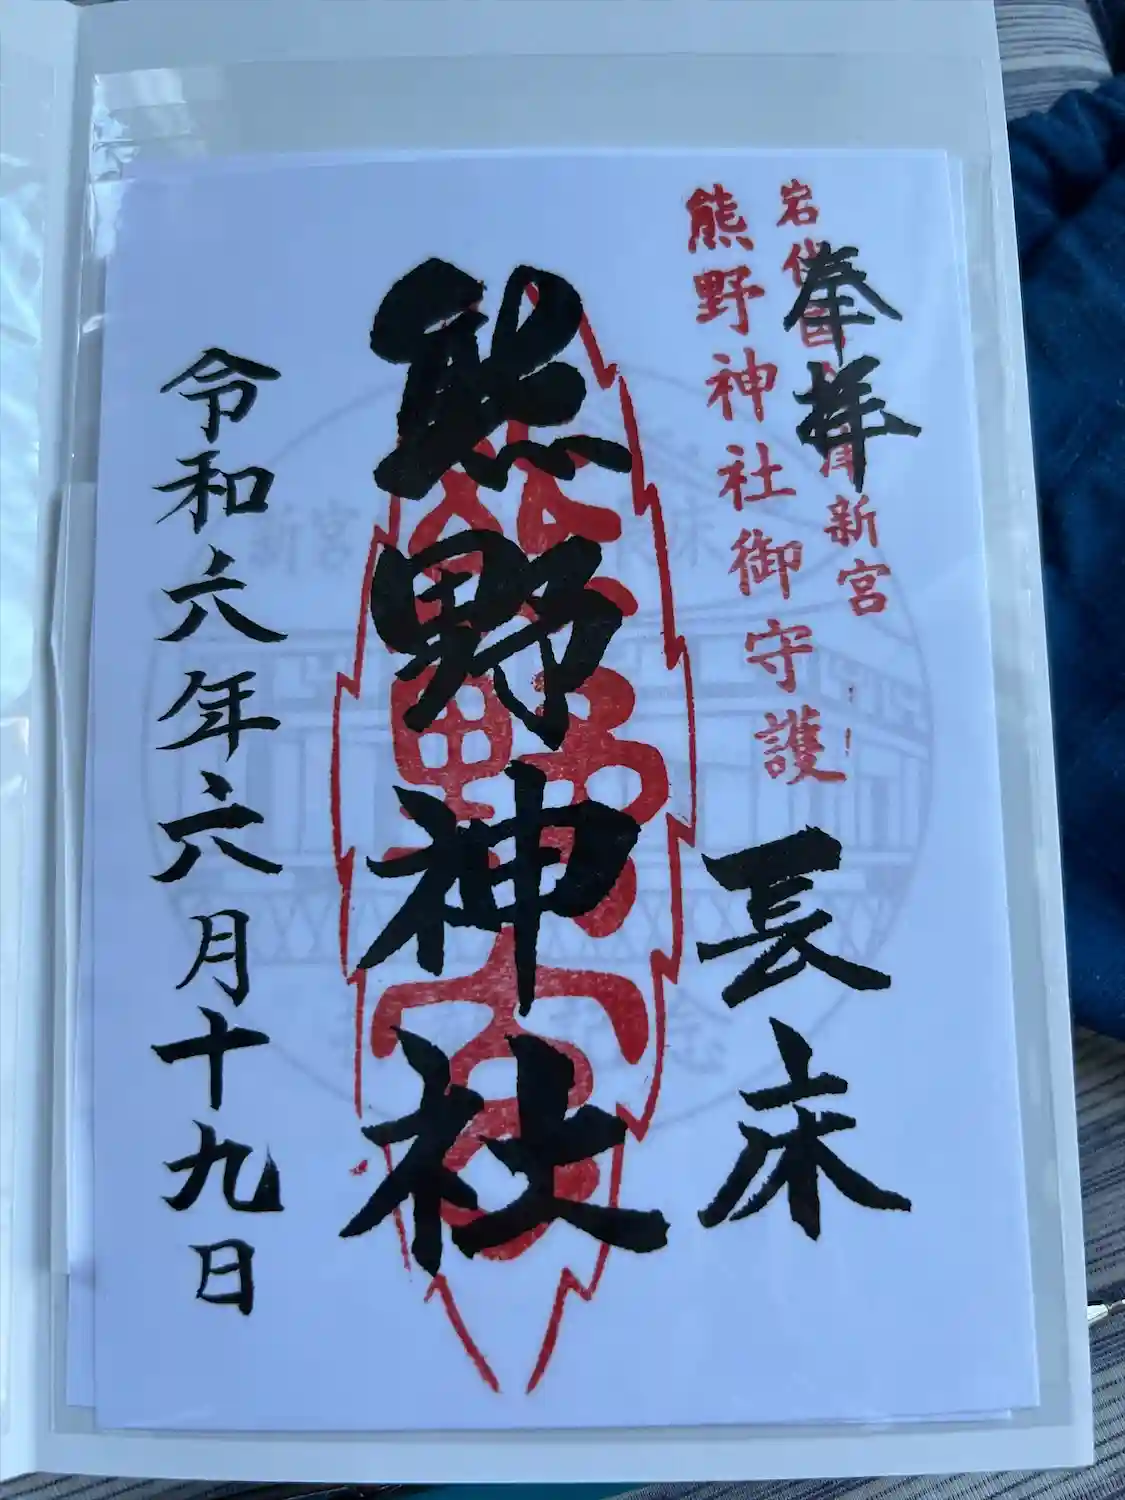 奉拝
岩代國 新宮
熊野神社御守護
長床
熊野神社
令和六年六月十九日
新宮 長床